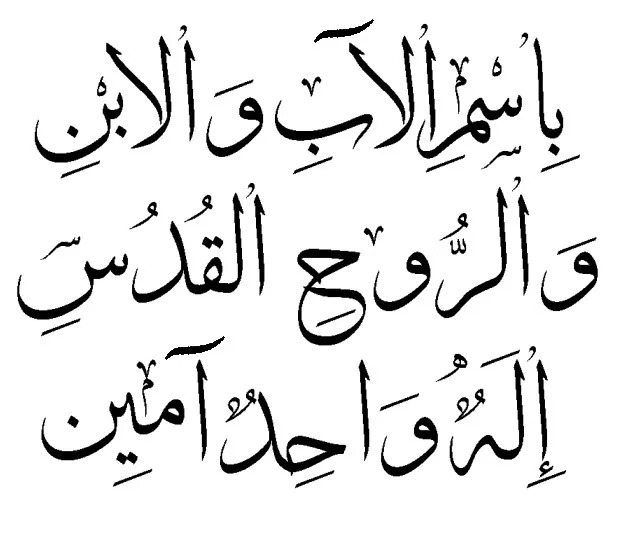 بِاسْمِ الآبِ وَالابْنِ
وَالرُّوحِ القُدُسِ
إِلَهٌ وَاحِدٌ آمِين